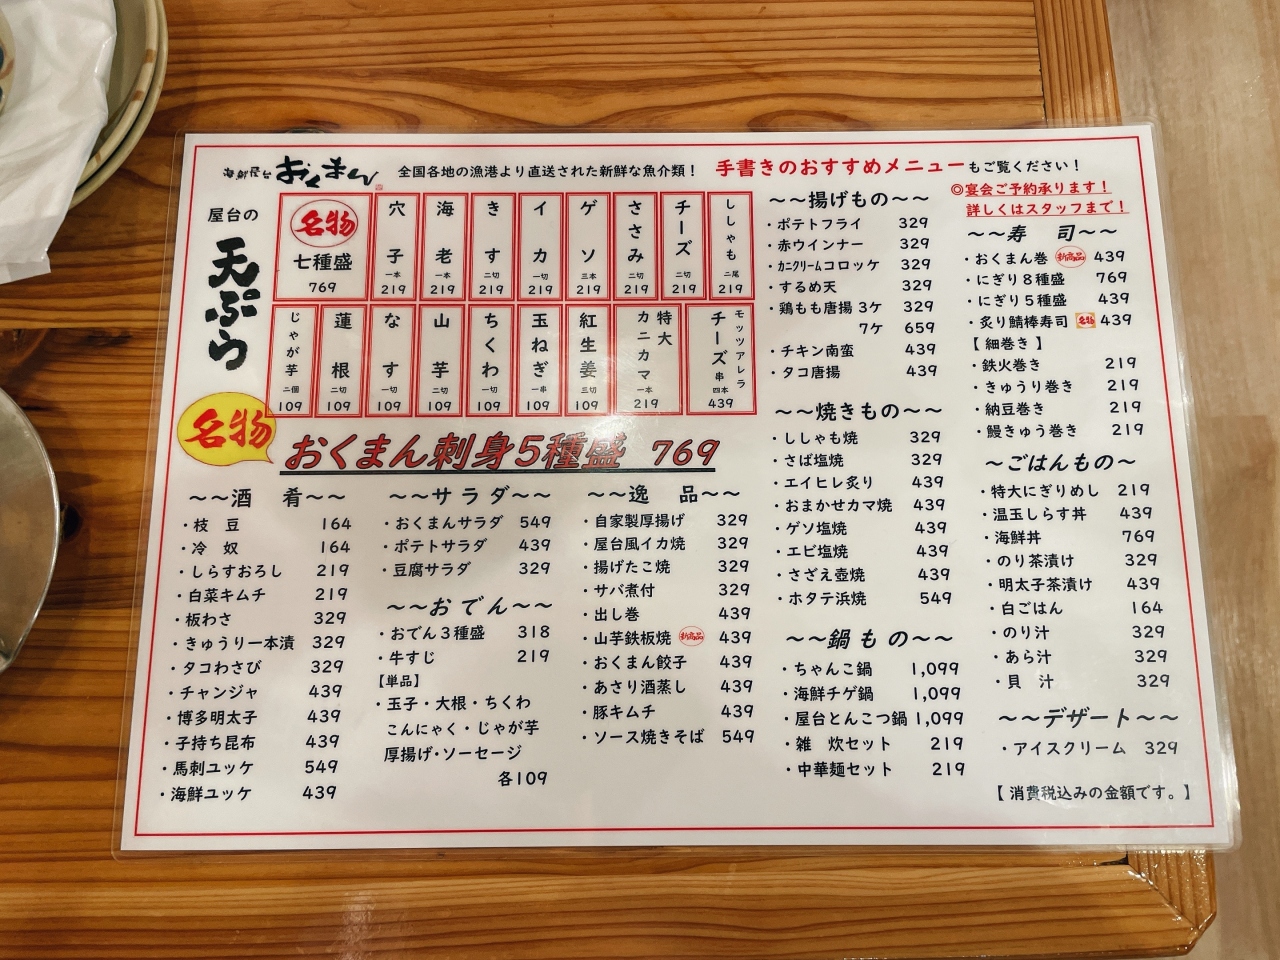 海鮮屋台 おくまん 全国各地の漁港より直送された新鮮な魚介類! 手書きのおすすめメニューもご覧ください!
屋台の
天ぷら
名物 七種盛 769
穴子 一本 219
海老 一本 219
きす 二切 219
イカ 一切 219
ゲソ 三本 219
ささみ 二切 219
チーズ 二切 219
ししゃも 二尾 219
じゃが芋 二個 109
蓮根 二切 109
なす 一切 109
山芋 二切 109
ちくわ 一切 109
玉ねぎ 一串 109
紅生姜 三切 109
特大カニカマ 一本 219
モッツアレラチーズ串 四本 439
名物
おくまん刺身5種盛 769
~~酒 肴~~
・枝 豆 164
・冷 奴 164
・しらすおろし 219
・白菜キムチ 219
・板わさ 329
・きゅうり一本漬 329
・タコわさび 329
・チャンジャ 439
・博多明太子 439
・子持ち昆布 439
・馬刺ユッケ 549
・海鮮ユッケ 439
~~サラダ~~
・おくまんサラダ 549
・ポテトサラダ 439
・豆腐サラダ 329
~~おでん~~
・おでん3種盛 318
・牛すじ 219
【単品】
・玉子・大根・ちくわ
こんにゃく・じゃが芋
厚揚げ・ソーセージ
各109
~~逸 品~~
・自家製厚揚げ 329
・屋台風イカ焼 329
・揚げたこ焼 329
・サバ煮付 329
・出し巻 439
・山芋鉄板焼 新商品 439
・おくまん餃子 439
・あさり酒蒸し 439
・豚キムチ 439
・ソース焼きそば 549
~~揚げもの~~
・ポテトフライ 329
・赤ウインナー 329
・カニクリームコロッケ 329
・するめ天 329
・鶏もも唐揚 3ケ 329
7ケ 659
・チキン南蛮 439
・タコ唐揚 439
~~焼きもの~~
・ししゃも焼 329
・さば塩焼 329
・エイヒレ炙り 439
・おまかせカマ焼 439
・ゲソ塩焼 439
・エビ塩焼 439
・さざえ壺焼 439
・ホタテ浜焼 549
~~鍋もの~~
・ちゃんこ鍋 1,099
・海鮮チゲ鍋 1,099
・屋台とんこつ鍋 1,099
・雑 炊セット 219
・中華麺セット 219
◎宴会ご予約承ります!
詳しくはスタッフまで!
~~寿 司~~
・おくまん巻 新商品 439
・にぎり8種盛 769
・にぎり5種盛 439
・炙り鯖棒寿司 名物 439
【細巻き】
・鉄火巻き 219
・きゅうり巻き 219
・納豆巻き 219
・鰻きゅう巻き 219
~~ごはんもの~
・特大にぎりめし 219
・温玉しらす丼 439
・海鮮丼 769
・のり茶漬け 329
・明太子茶漬け 439
・白ごはん 164
・のり汁 329
・あら汁 329
・貝 汁 329
~~デザート~~
・アイスクリーム 329
【消費税込みの金額です。】